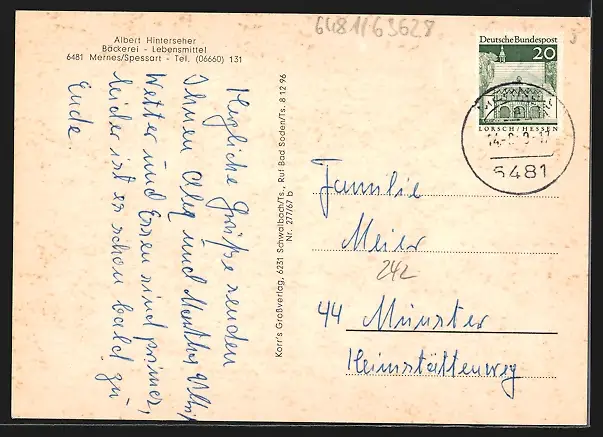 6481/63628
Albert Hinterseher
Bäckerei - Lebensmittel
6481 Mernes/Spessart - Tel. (06660) 131
Herzliche Grüße senden
Ihnen und Martha
Wetter und Essen sind prima,
leider ist es schon bald zu
Ende
Korr's Großverlag, 6231 Schwalbach/Ts., Ruf Bad Soden/Ts. 8 12 96
Nr. 277/67 b
Deutsche Bundespost
20
LORSCH/HESSEN
6481
Familie
Meier
242
44 Münster
Heimstättenweg